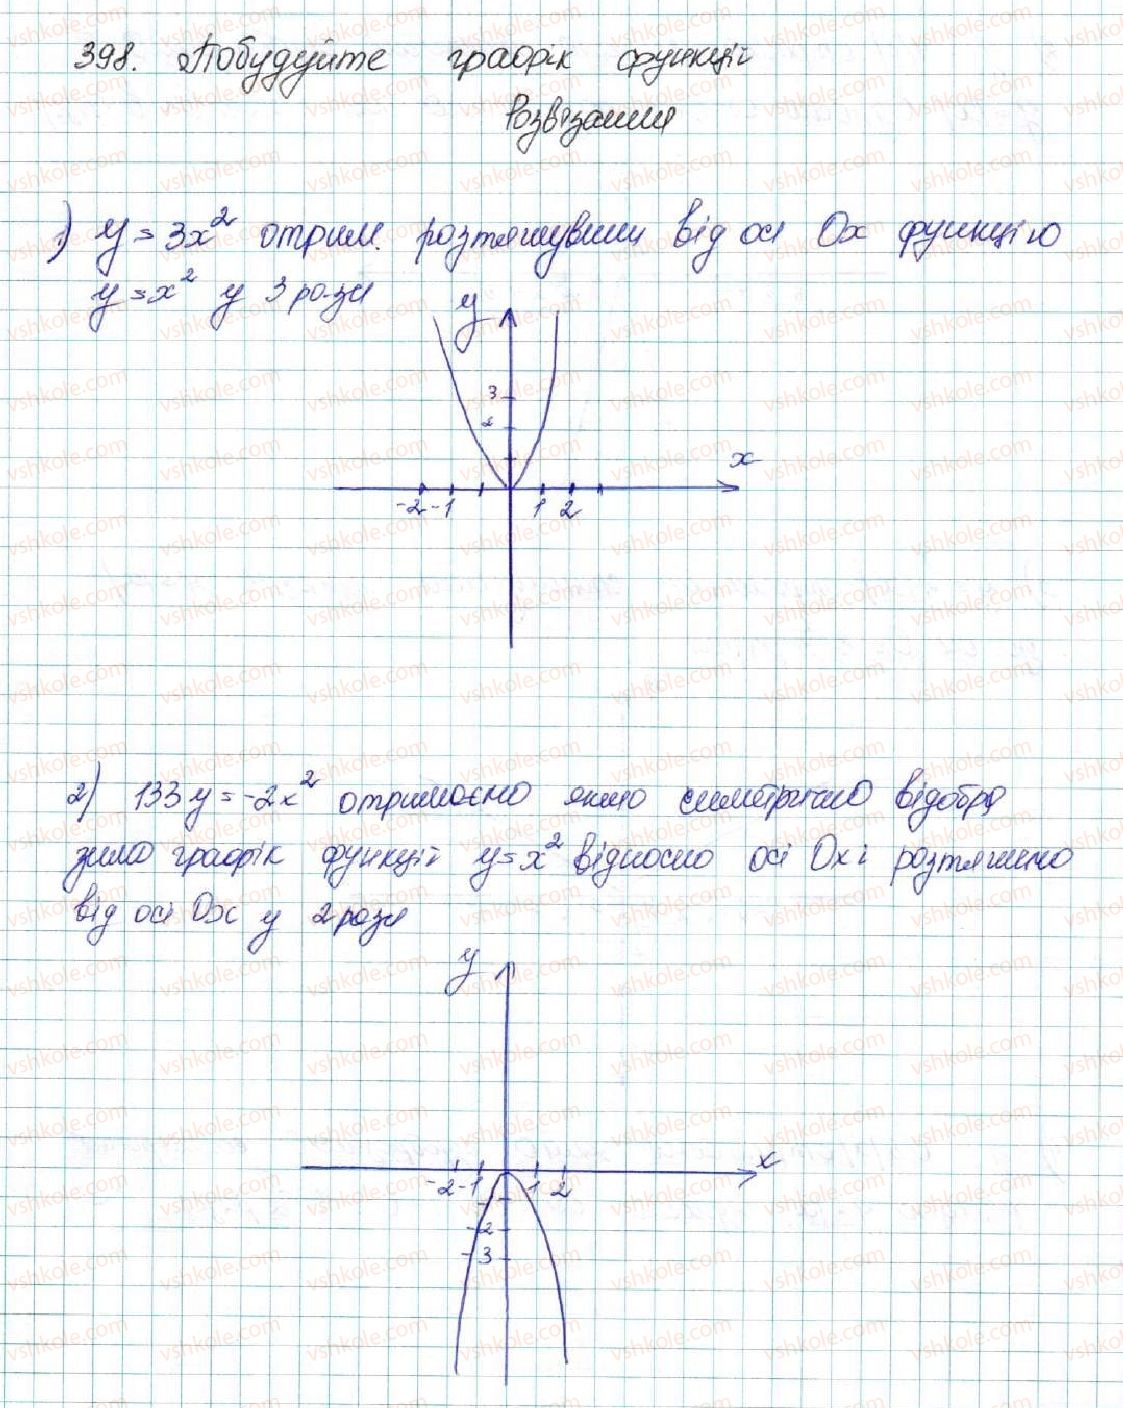 398. Побудуйте графік функції
Розв'язання
1) y = 3x² отрим. розтягнувши від осі Ox функцію
y = x² у 3 рази
y
3
2
x
-2 -1 1 2
2) 133 y = -2x² отримаємо якщо симетрично відобра
зимо графік функції y = x² відносно осі Ox і розтягнемо
від осі Ox у 2 рази
y
x
-2 -1 1 2
-2
-3